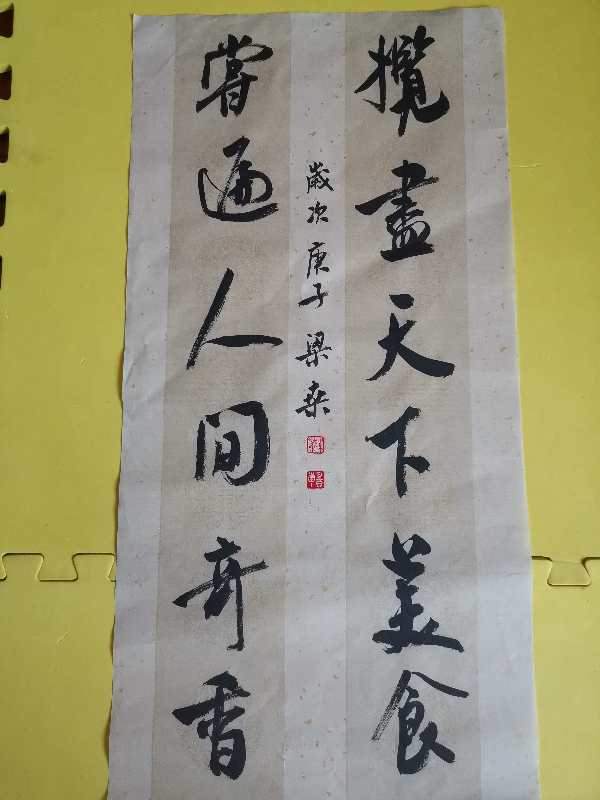 攬盡天下美食
嘗遍人间奇香
歲次庚子梁桑